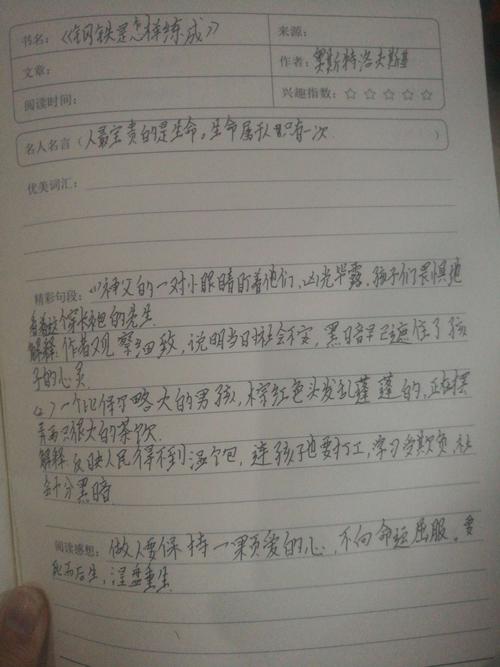 书名：《钢铁是怎样练成》
来源：
文章：
作者：奥斯特洛夫斯基
阅读时间：
兴趣指数：☆ ☆ ☆ ☆ ☆
名人名言（人最宝贵的是生命。生命属于人只有一次 ）
优美词汇：
精彩句段：(1)神父的一对小眼睛盯着他们，凶光毕露，孩子们畏惧地
看着这个穿长袍的先生
解释：作者观察细致，说明当日社会不安，黑暗早已遮住了孩
子的心灵
(2)一个比保尔略大的男孩，棕红色头发乱蓬蓬的，正在摆
弄两只很大的茶饮
解释 反映人民得不到温饱，连孩子也要打工，学习 欺负 社
会十分黑暗
阅读感想：做人要保持一颗爱的心，不向命运屈服。要
死而后生，涅盘重生